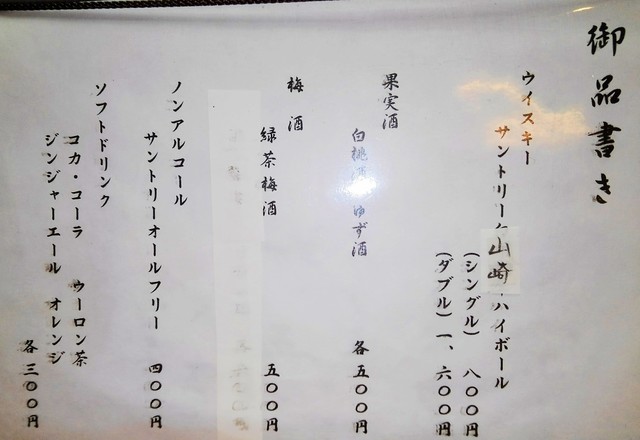 御品書き
ウイスキー
サントリー 山崎 ハイボール
(シングル) 八〇〇円
(ダブル) 一、六〇〇円
果実酒
白桃酒 ゆず酒 各五〇〇円
梅酒
緑茶梅酒 五〇〇円
ノンアルコール
サントリーオールフリー 四〇〇円
ソフトドリンク
コカ・コーラ ウーロン茶
ジンジャーエール オレンジ
各三〇〇円